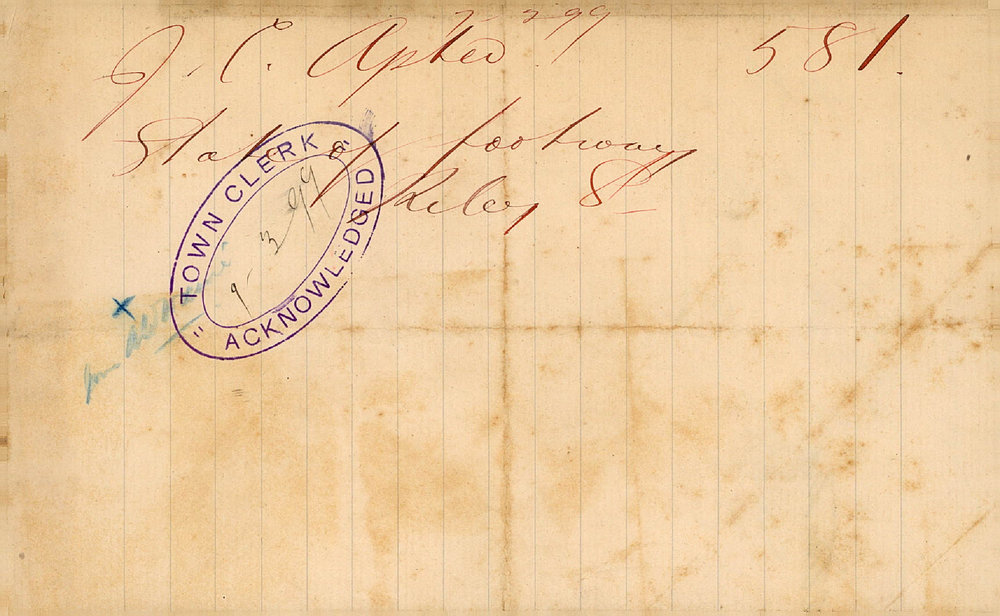 J. C. Apted 581.
State of footway
Riley St
" TOWN CLERK "
9 - 3 99
ACKNOWLEDGED